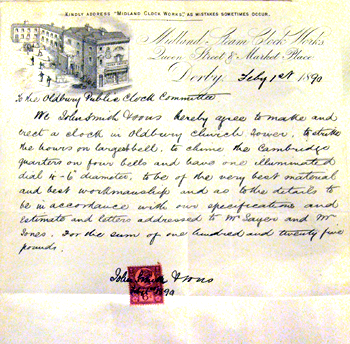 KINDLY ADDRESS "MIDLAND CLOCK WORKS," AS MISTAKES SOMETIMES OCCUR.
Midland Steam Clock Works
Queen Street & Market Place
Derby Feby 1st 1890
To the Oldbury Public Clock Committee
We John Smith & Sons hereby agree to make and
erect a clock in Oldbury Church Tower, to strike
the hours on largest bell, to chime the Cambridge
quarters on four bells and have one illuminated
dial 4-6 diameter, to be of the very best material
and best workmanship and as to the details to
be in accordance with our specifications and
estimate and letters addressed to Mr Sayer and Mr
Jones. For the sum of one hundred and twenty five
pounds.
John Smith & Sons
1890